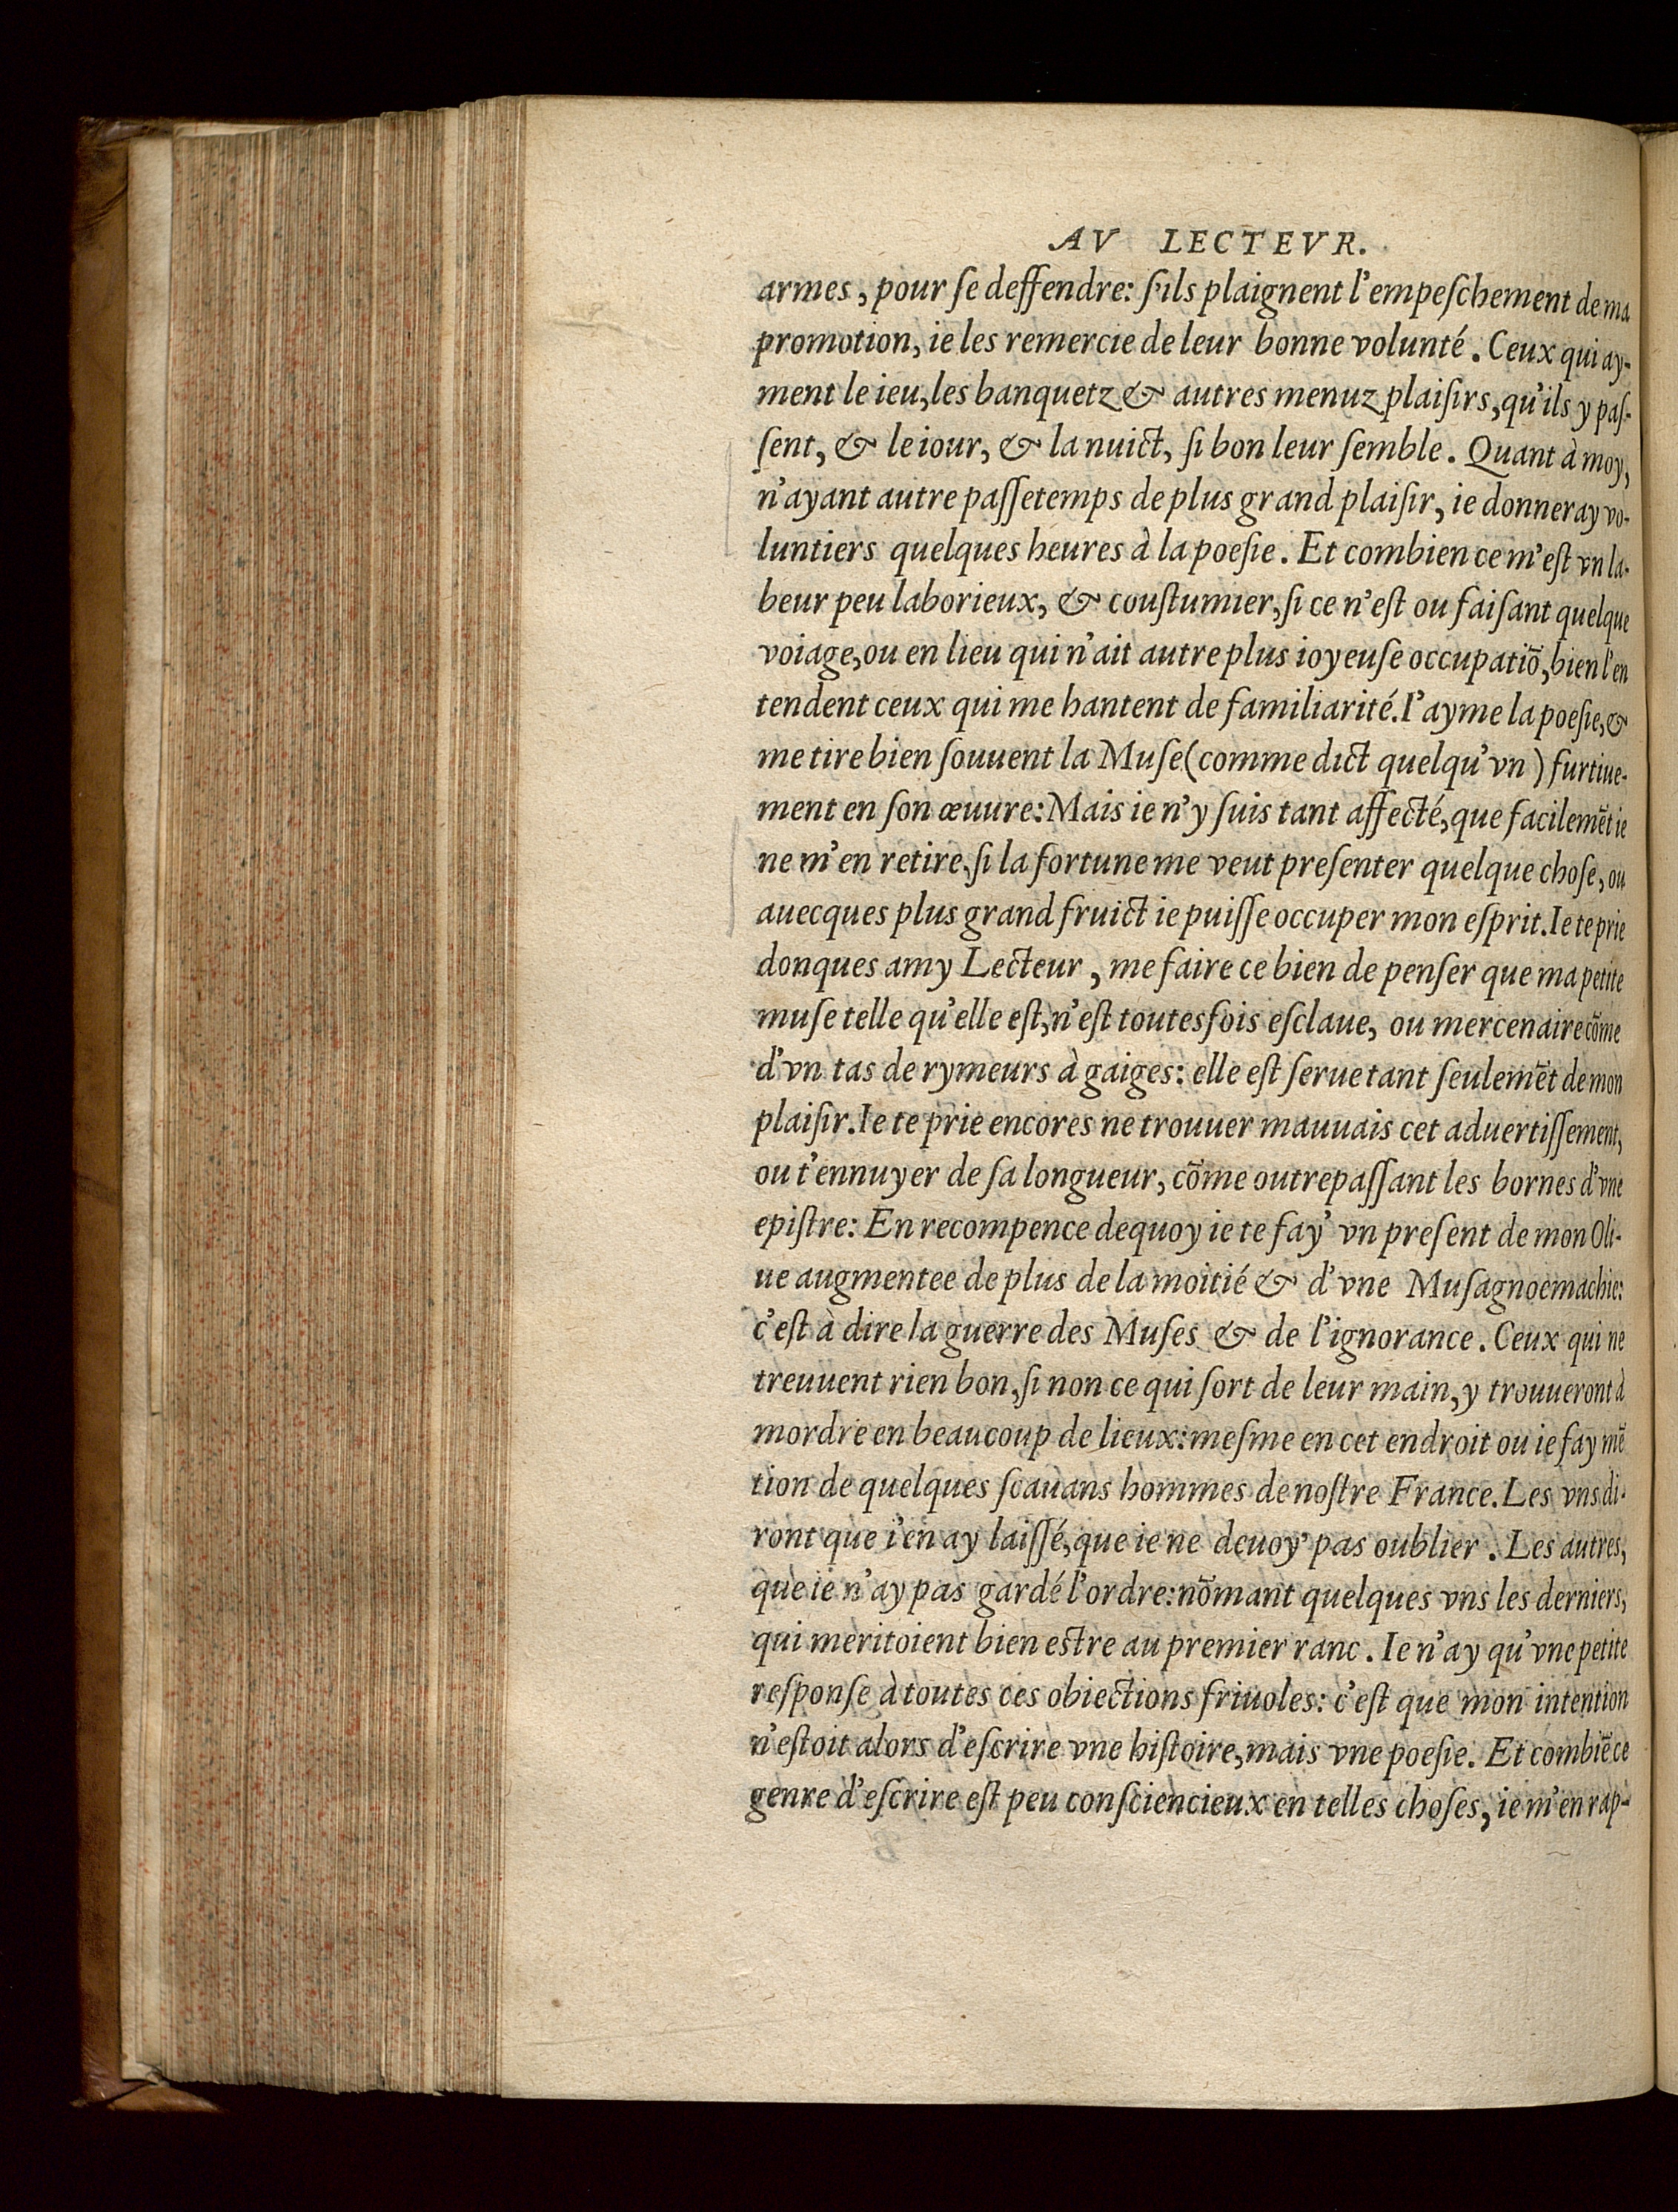 AV LECTEVR.
armes, pour ſe deffendre: ſ'ils plaignent l'empeſchement de ma
promotion, ie les remercie de leur bonne volunté. Ceux qui ay-
ment le ieu, les banquetz & autres menuz plaiſirs, qu'ils y paſ-
ſent, & le iour, & la nuict, ſi bon leur ſemble. Quant à moy,
n'ayant autre paſſetemps de plus grand plaiſir, ie donneray vo-
luntiers quelques heures à la poeſie. Et combien ce m'eſt vn la-
beur peu laborieux, & couſtumier, ſi ce n'eſt ou faiſant quelque
voiage, ou en lieu qui n'ait autre plus ioyeuſe occupatiō, bien l'en
tendent ceux qui me hantent de familiarité. I'ayme la poeſie, &
me tire bien ſouuent la Muſe (comme dict quelqu'vn) furtiue-
ment en ſon œuure: Mais ie n'y ſuis tant affecté, que facilemēt ie
ne m'en retire, ſi la fortune me veut preſenter quelque choſe, ou
auecques plus grand fruict ie puiſſe occuper mon eſprit. Ie te prie
donques amy Lecteur, me faire ce bien de penſer que ma petite
muſe telle qu'elle eſt, n'eſt toutesfois eſclaue, ou mercenaire cōme
d'vn tas de rymeurs à gaiges: elle eſt ſerue tant ſeulemēt de mon
plaiſir. Ie te prie encores ne trouuer mauuais cet aduertiſſement,
ou t'ennuyer de ſa longueur, cōme outrepaſſant les bornes d'vne
epiſtre: En recompence dequoy ie te fay' vn preſent de mon Oli-
ue augmentee de plus de la moitié & d'vne Muſagnoemachie:
c'eſt à dire la guerre des Muſes & de l'ignorance. Ceux qui ne
treuuent rien bon, ſi non ce qui ſort de leur main, y trouueront à
mordre en beaucoup de lieux: meſme en cet endroit ou ie fay mē
tion de quelques ſcauans hommes de noſtre France. Les vns di-
ront que i'en ay laiſſé, que ie ne deuoy' pas oublier. Les autres,
que ie n'ay pas gardé l'ordre: nōmant quelques vns les derniers,
qui meritoient bien eſtre au premier ranc. Ie n'ay qu'vne petite
reſponſe à toutes ces obiections friuoles: c'eſt que mon intention
n'eſtoit alors d'eſcrire vne hiſtoire, mais vne poeſie. Et combiē ce
genre d'eſcrire eſt peu conſciencieux en telles choſes, ie m'en rap-